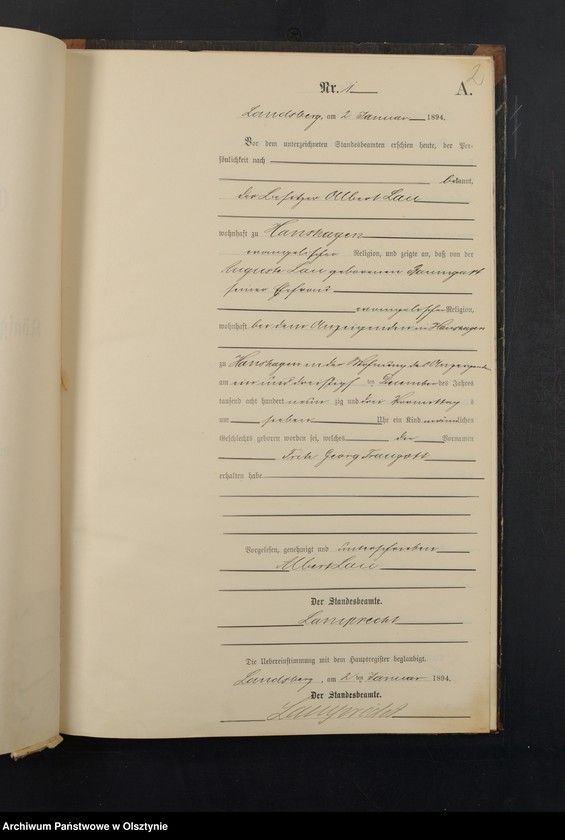 2
Nr. 1
A.
Landsberg, am 2 Januar 1894.
Vor dem unterzeichneten Standesbeamten erschien heute, der Per-
sönlichkeit nach
bekannt,
der Besitzer Albert Lau
wohnhaft zu Hanshagen
evangelischer Religion, und zeigte an, daß von der
Auguste Lau geborenen Baumgart
seiner Ehefrau
evangelischer Religion,
wohnhaft bei dem Anzeigenden in Hanshagen
zu Hanshagen in der Wohnung des Anzeigenden
am ein und dreißigsten December des Jahres
tausend acht hundert neun zig und drei Vormittags
um sieben Uhr ein Kind männlichen
Geschlechts geboren worden sei, welches den Vornamen
Fritz Georg Traugott
erhalten habe
Vorgelesen, genehmigt und unterschrieben
Albert Lau
Der Standesbeamte.
Lamprecht
Die Uebereinstimmung mit dem Hauptregister beglaubigt.
Landsberg, am 2 ten Januar 1894.
Der Standesbeamte.
Lamprecht
Archiwum Państwowe w Olsztynie